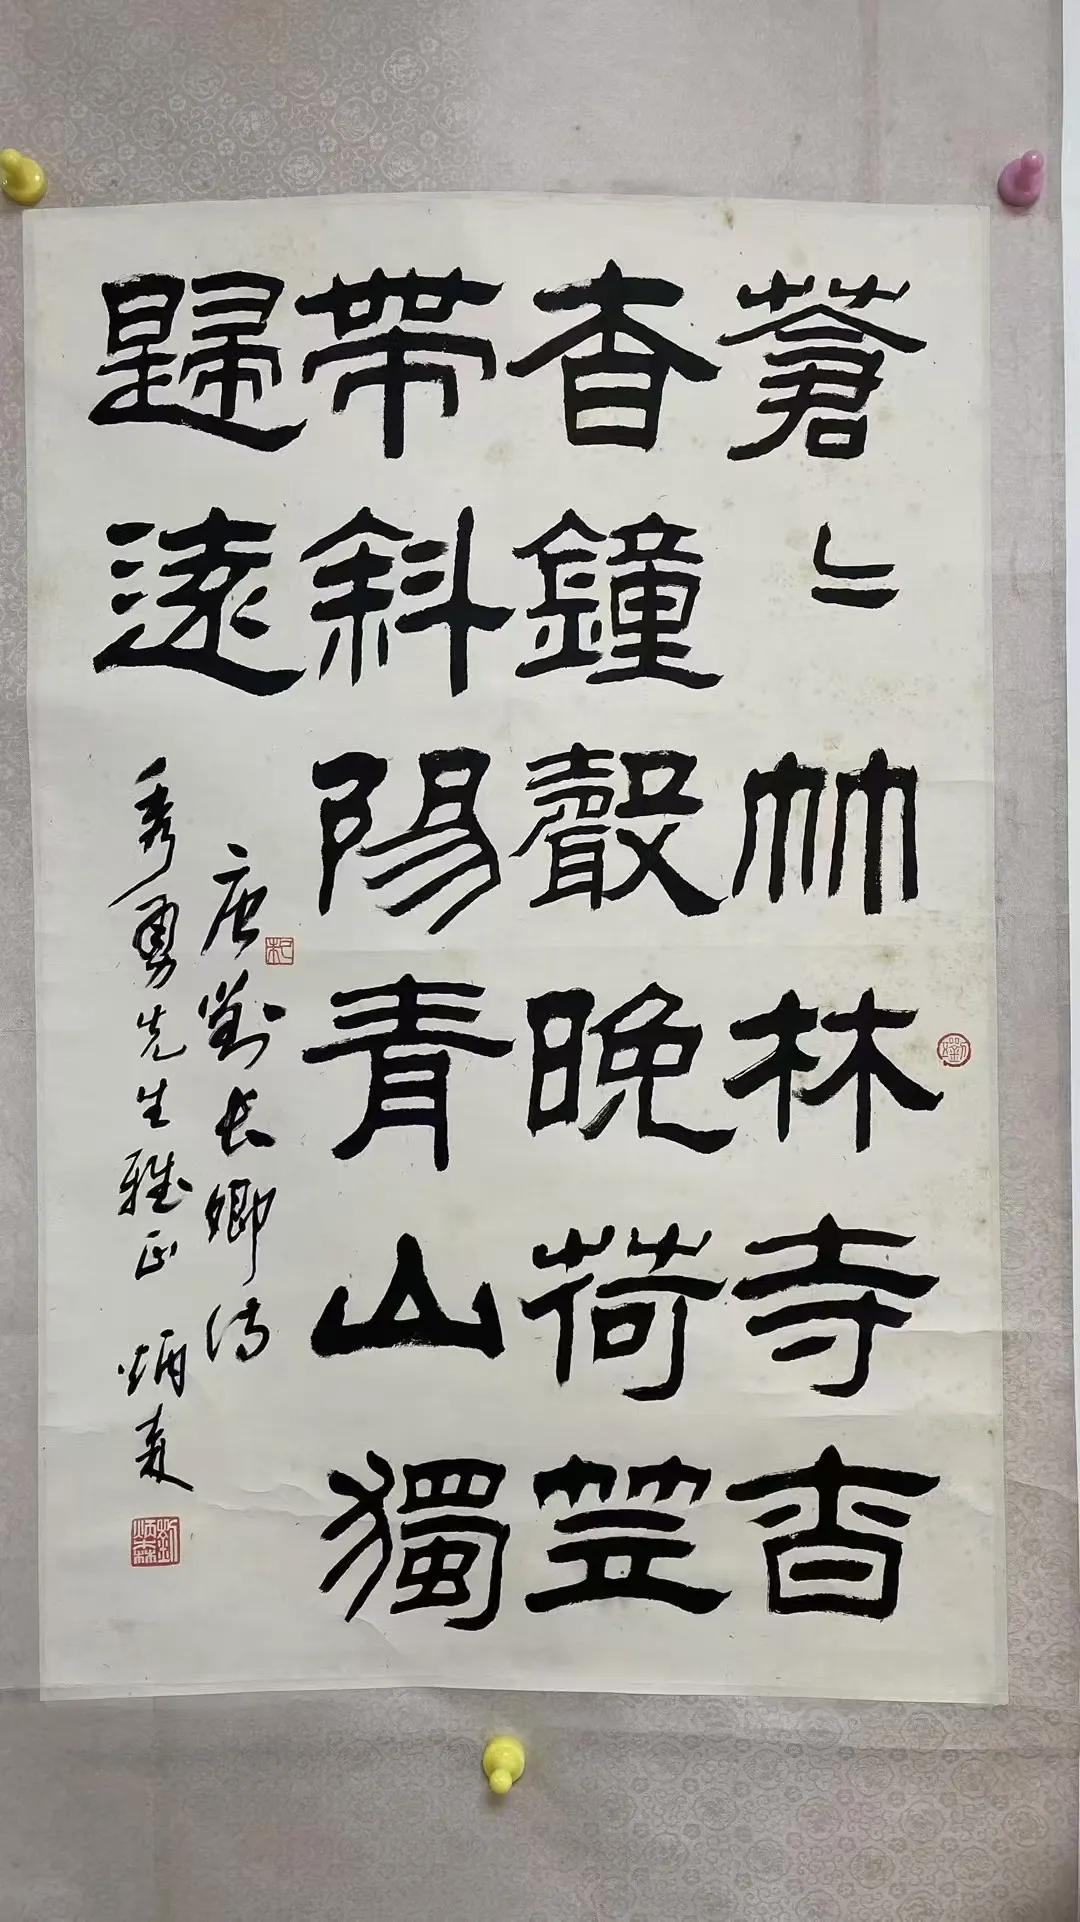 蒼〻竹林寺杳
杳鐘聲晚荷笠
帶斜陽青山獨
歸遠
唐劉长卿诗
秀勇先生雅正 炳森
劉炳森